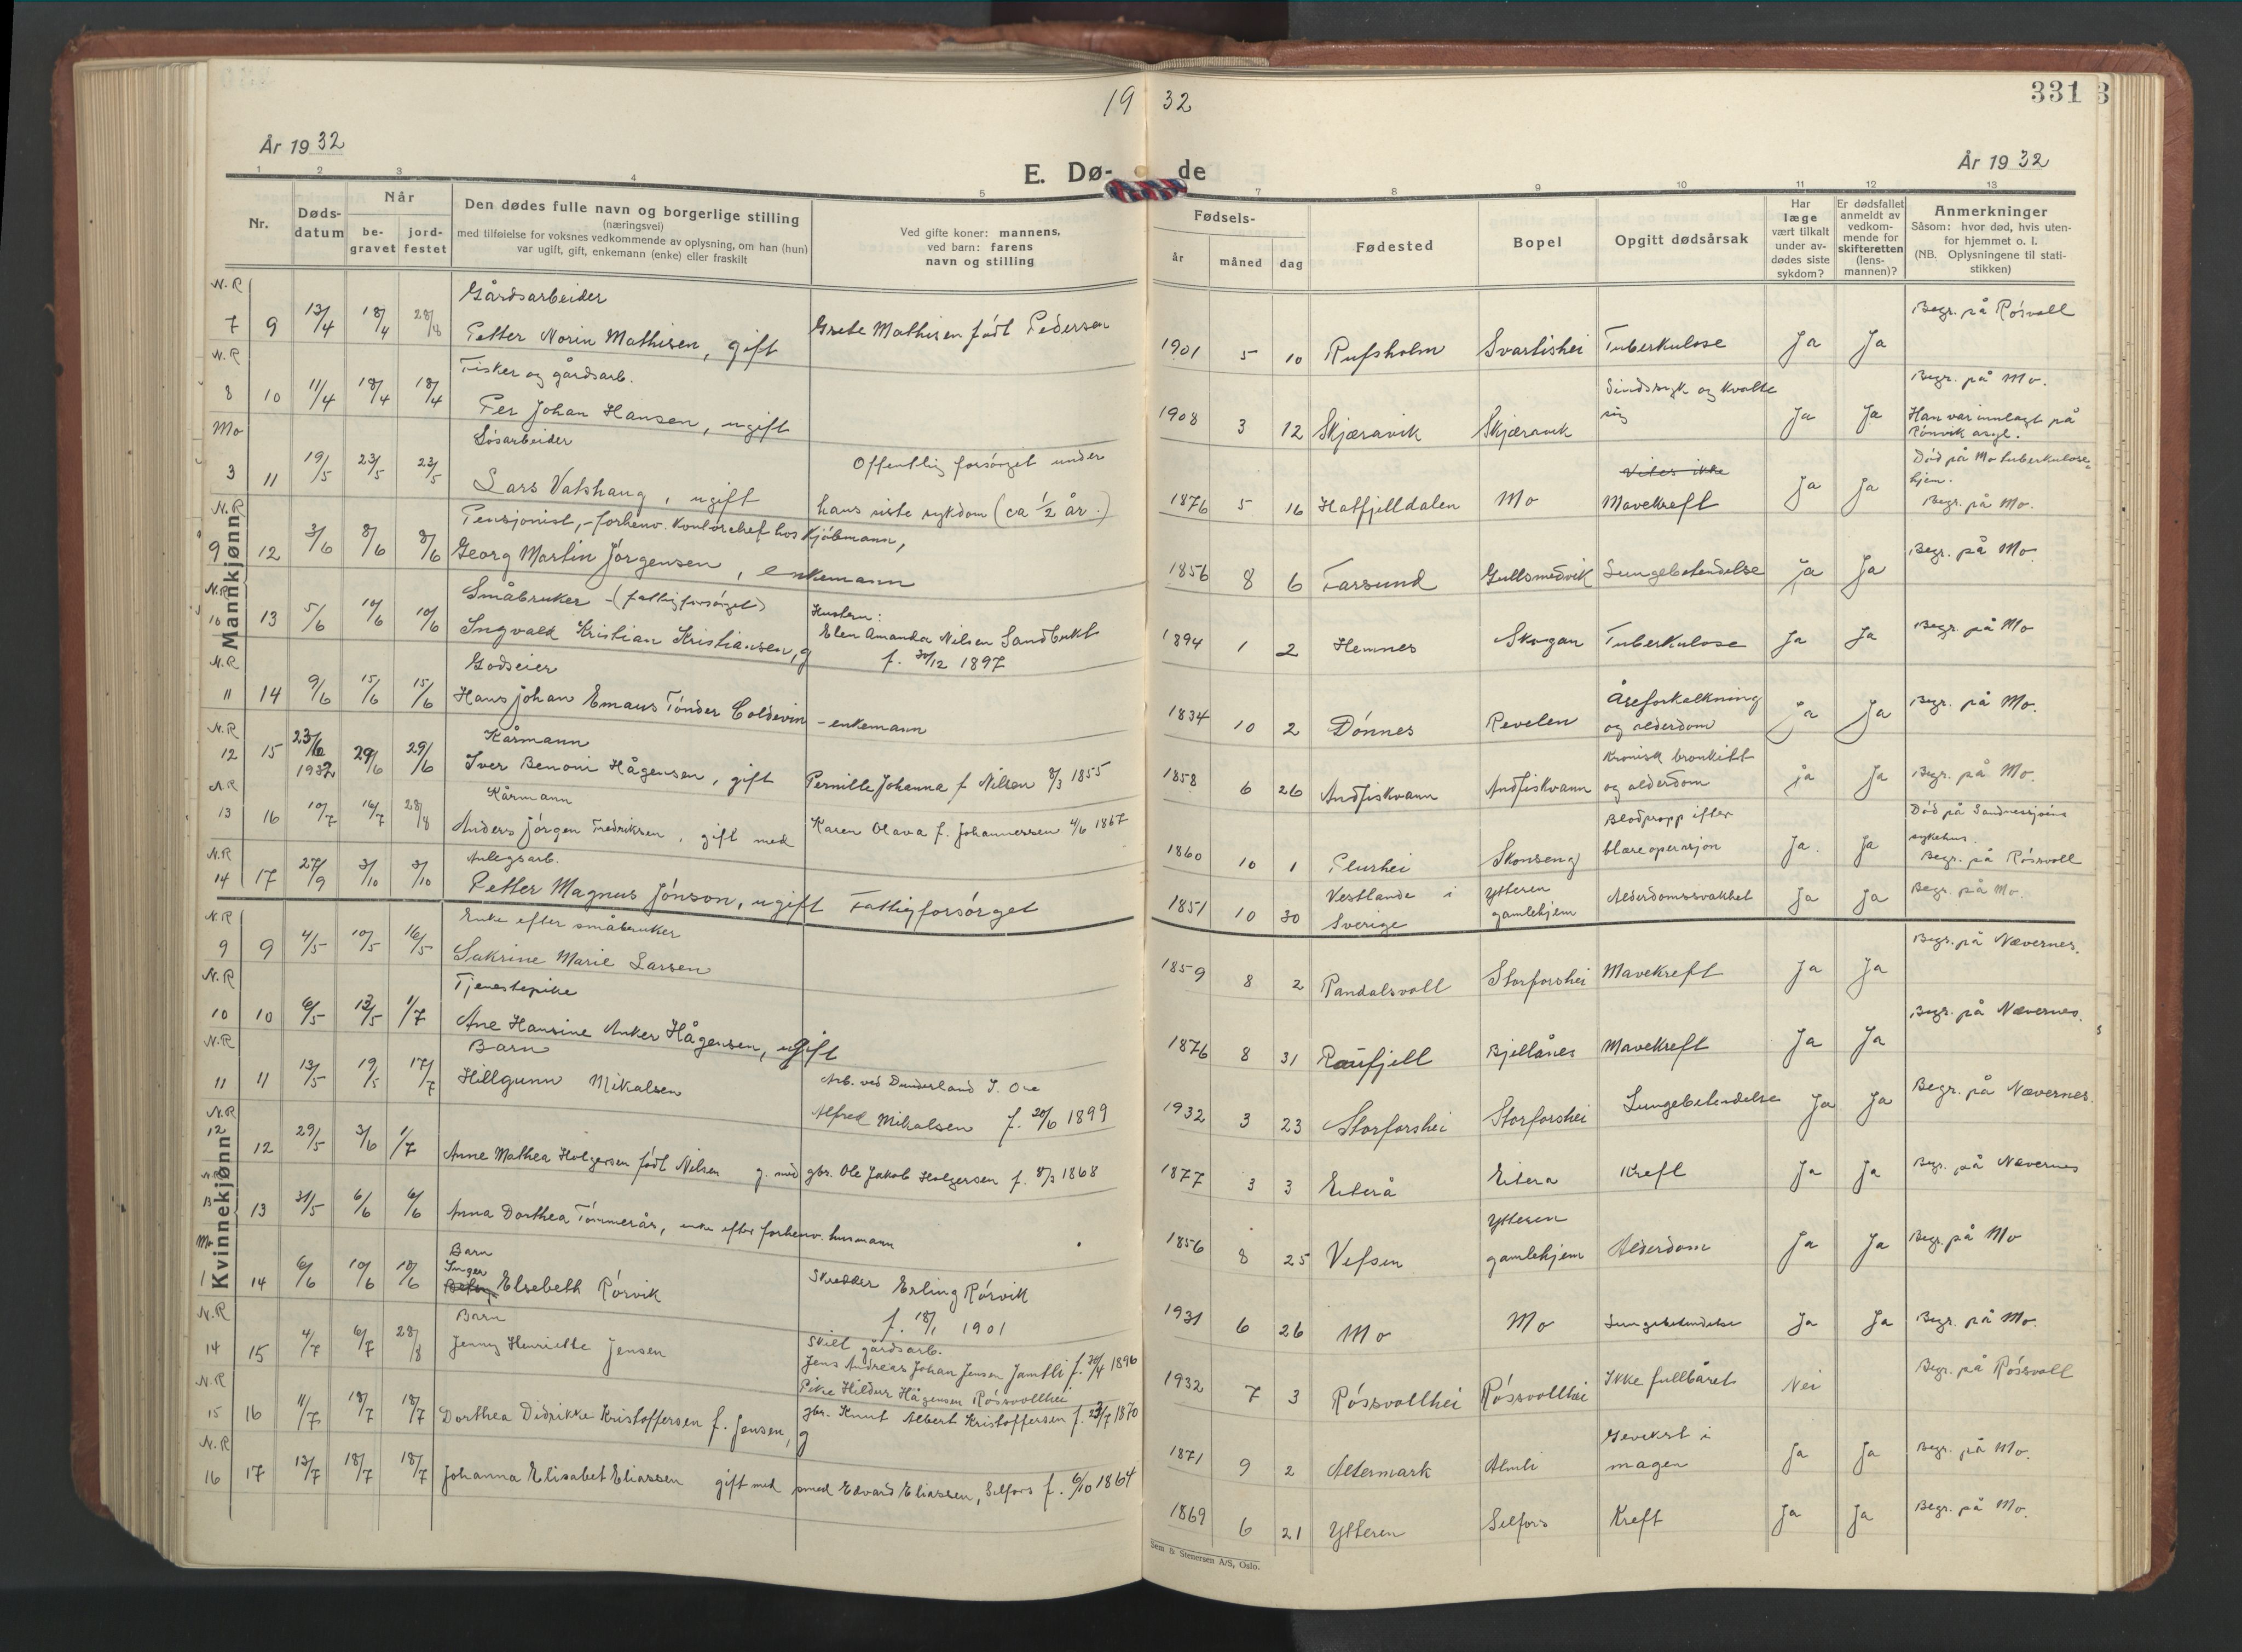 19 32
331
År 1932
År 1932
E. Dø- de
1 2 3 4 5 7 8 9 10 11 12 13
Nr.
Døds-
datum
Når
be-
gravet
jord-
festet
Den dødes fulle navn og borgerlige stilling
(næringsvei)
med tilføielse for voksnes vedkommende av oplysning, om han (hun)
var ugift, gift, enkemann (enke) eller fraskilt
Ved gifte koner: mannens,
ved barn: farens
navn og stilling
Fødsels-
år måned dag
Fødested
Bopel
Opgitt dødsårsak
Har
læge
vært tilkalt
under av-
dødes siste
sykdom?
Er dødsfallet
anmeldt av
vedkom-
mende for
skifteretten
(lens-
mannen)?
Anmerkninger
Såsom: hvor død, hvis uten-
for hjemmet o. l.
(NB. Oplysningene til stati-
stikken)
Mannkjønn
N.R Gårdsarbeider
7 9 13/4 18/4 28/8 Petter Norin Mathisen, gift Grete Mathisen født Pedersen 1901 5 10 Rufsholm Svartishei Tuberkulose Ja Ja Begr. på Røsvoll
N.R Fisker og gårdsarb.
8 10 11/4 18/4 18/4 Per Johan Hansen, ugift 1908 3 12 Skjæravik Skjæravik Sindssyk og kvalte sig Ja Ja Begr. på Mo.
Han var innlagt på
Rønvik asyl.
Mo Løsarbeider
3 11 19/5 23/5 23/5 Lars Vatshaug, ugift Offentlig forsørget under
hans siste sykdom (ca ½ år.) 1876 5 16 Hatfjelldalen Mo Vites ikke
Mavekreft Ja Ja Død på Mo tuberkulose-
hjem.
Begr. på Mo.
N.R Pensjonist, - forhenv. Kontorchef hos Kjøbmann,
9 12 3/6 8/6 8/6 Georg Martin Jørgensen, enkemann 1856 8 6 Farsund Gullsmedvik Lungebetendelse ja Ja Begr. på Mo.
N.R Småbruker - (fattigforsørget)
10 13 5/6 10/6 10/6 Ingvald Kristian Kristiansen, g Hustru:
Elen Amanda Nilsen Sandbukt
f. 30/12 1897 1894 1 2 Hemnes Skogan Tuberkulose Ja Ja Begr. på Mo
N.R Godseier
11 14 9/6 15/6 15/6 Hans Johan Emaus Tønder Coldevin - enkemann 1834 10 2 Dønnes Revelen Åreforkalkning
og alderdom Ja Ja Begr. på Mo.
N.R Kårmann
12 15 23/6 1932 29/6 29/6 Iver Benoni Hågensen, gift Pernille Johanna f Nilsen 8/3 1855 1858 6 26 Andfiskvann Andfiskvann Kronisk bronkitt
og alderdom ja Ja Begr. på Mo.
N.R Kårmann
13 16 10/7 16/7 28/8 Anders Jørgen Fredriksen, gift med Karen Olava f. Johannessen 4/6 1867 1860 10 1 Plurhei Skonseng Blodpropp efter
blæreoperasjon Ja. Ja Død på Sandnessjøens
sykehus.
Begr. på Røssvoll
N.R Anlegsarb.
14 17 27/9 3/10 3/10 Petter Magnus Jönson, ugift Fattigforsørget 1851 10 30 Vestlande i
Sverige Ytteren
gamlehjem Alderdomssvakhet Ja Ja Begr. på Mo.
Kvinnekjønn
N.R Enke efter småbruker
9 9 4/5 10/5 16/5 Sakrine Marie Larsen 1859 8 2 Randalsvoll Storforshei Mavekreft Ja Ja Begr. på Nævernes.
N.R Tjenestepike
10 10 6/5 13/5 1/7 Ane Hansine Anker Hågensen, ugift 1876 8 31 Raufjell Bjellånes Mavekreft Ja Ja Begr. på Nævernes.
N.R Barn
11 11 13/5 19/5 17/7 Hillgunn Mikalsen Arb. ved Dunderland I. Ore
Alfred Mikalsen f. 20/6 1899 1932 3 23 Storforshei Storforshei Lungebetendelse Ja Ja Begr. på Nævernes.
N.R
12 12 29/5 3/6 1/7 Anne Mathea Holgersen født Nilsen g. med gbr. Ole Jakob Holgersen f. 8/3 1868 1877 3 3 Eiterå Eitera Kreft Ja Ja Begr. på Nævernes
N.R
13 13 31/5 6/6 6/6 Anna Dorthea Tømmerås, enke efter forhenv. husmann 1856 8 25 Vefsen Ytteren
gamlehjem Alderdom Ja Ja Begr. på Mo
Mo Barn
1 14 6/6 10/6 10/6 Inger Elsebeth Rørvik Skredder Erling Rørvik
f. 18/1 1901 1931 6 26 Mo Mo Lungebetendelse Ja Ja Begr. på Mo.
N.R Barn
14 15 4/7 6/7 28/8 Jenny Henriette Jensen Skilt gårdsarb.
Jens Andreas Johan Jensen Jamtli f. 20/4 1896
Pike Hildur Hågensen Røssvollhei 1932 7 3 Røssvollhei Røssvollhei Ikke fullbåret Nei Begr. på Røssvoll
N.R
15 16 11/7 18/7 18/7 Dorthea Didrikke Kristoffersen f. Jensen, g gbr. Knut Albert Kristoffersen f. 23/7 1870 1871 9 2 Altermark Almli Gevekst i
magen Ja Ja Begr. på Mo.
N.R
16 17 13/7 18/7 18/7 Johanna Elisabet Eliassen gift med smed Edvard Eliassen, Selfors f. 6/10 1864 1869 6 21 Ytteren Selfors Kreft Ja Ja Begr. på Mo.
Sem & Stenersen A/S, Oslo.